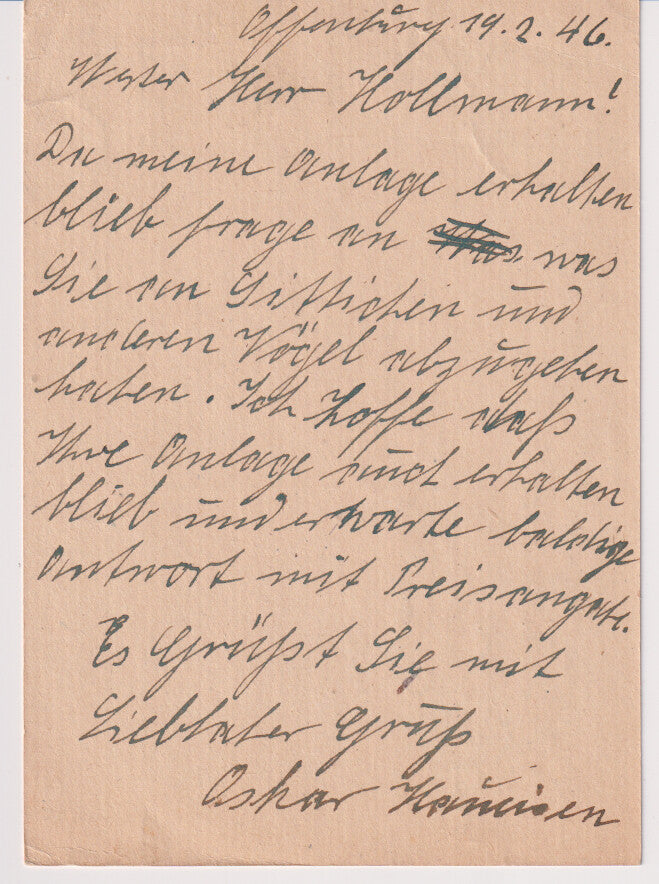 Offenburg 19.2.46.
Werter Herr Hollmann!
Da meine Anlage erhalten
blieb frage an was
Sie an Sittichen und
anderen Vögel abzugeben
haben. Ich hoffe daß
Ihre Anlage auch erhalten
blieb und erwarte baldige
Antwort mit Preisangabe.
Es Grüßt Sie mit
Liebhaber Gruß
Oskar